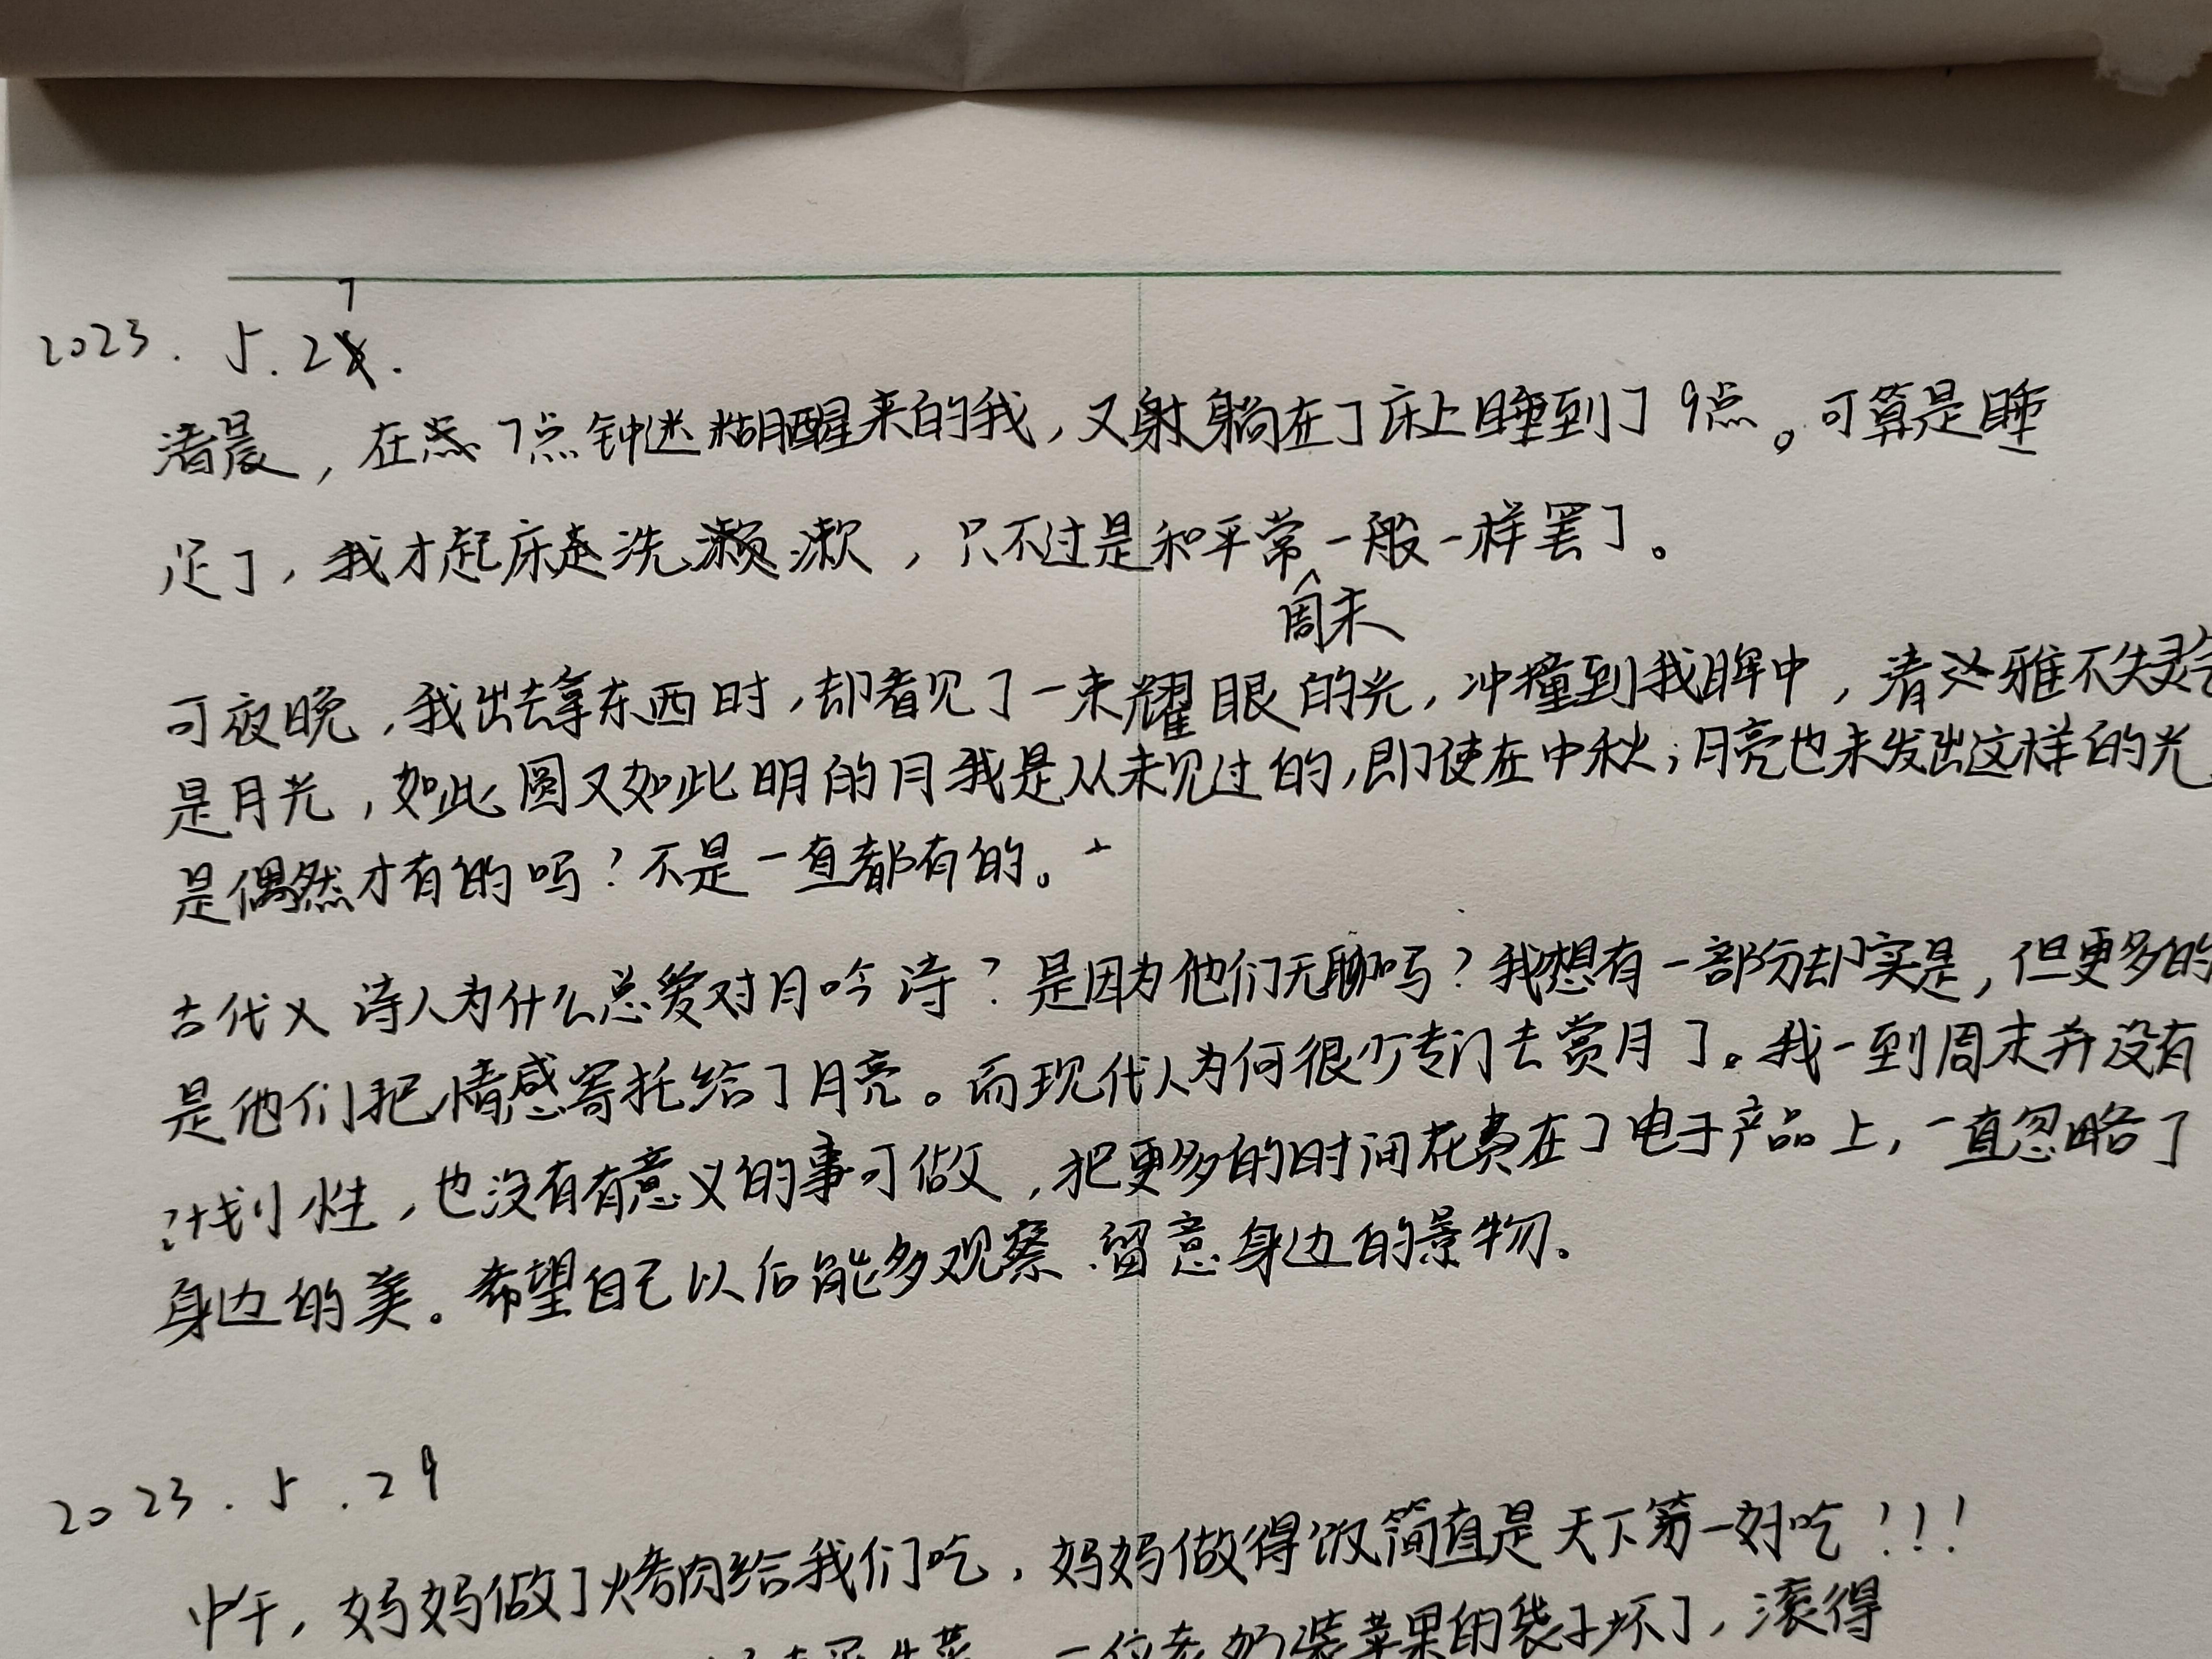 2023.5.27.
清晨，在7点钟迷糊醒来的我，又躺在了床上睡到了9点。可算是睡
足了，我才起床洗漱，只不过是和平常周末一般一样罢了。
可夜晚，我出去拿东西时，却看见了一束耀眼的光，冲撞到我眸中，清雅不失灵气
是月光，如此圆又如此明的月我是从未见过的，即使在中秋；月亮也未发出这样的光
是偶然才有的吗？不是一直都有的。
古代诗人为什么总爱对月吟诗？是因为他们无聊吗？我想有一部分却实是，但更多的
是他们把情感寄托给了月亮。而现代人为何很少专门去赏月了。我一到周末并没有
计划性，也没有有意义的事可做，把更多的时间花费在了电子产品上，一直忽略了
身边的美。希望自己以后能多观察、留意身边的景物。
2023.5.29
中午，妈妈做了烤肉给我们吃，妈妈做得饭简直是天下第一好吃！！！
一位老奶装苹果的袋子坏了，滚得